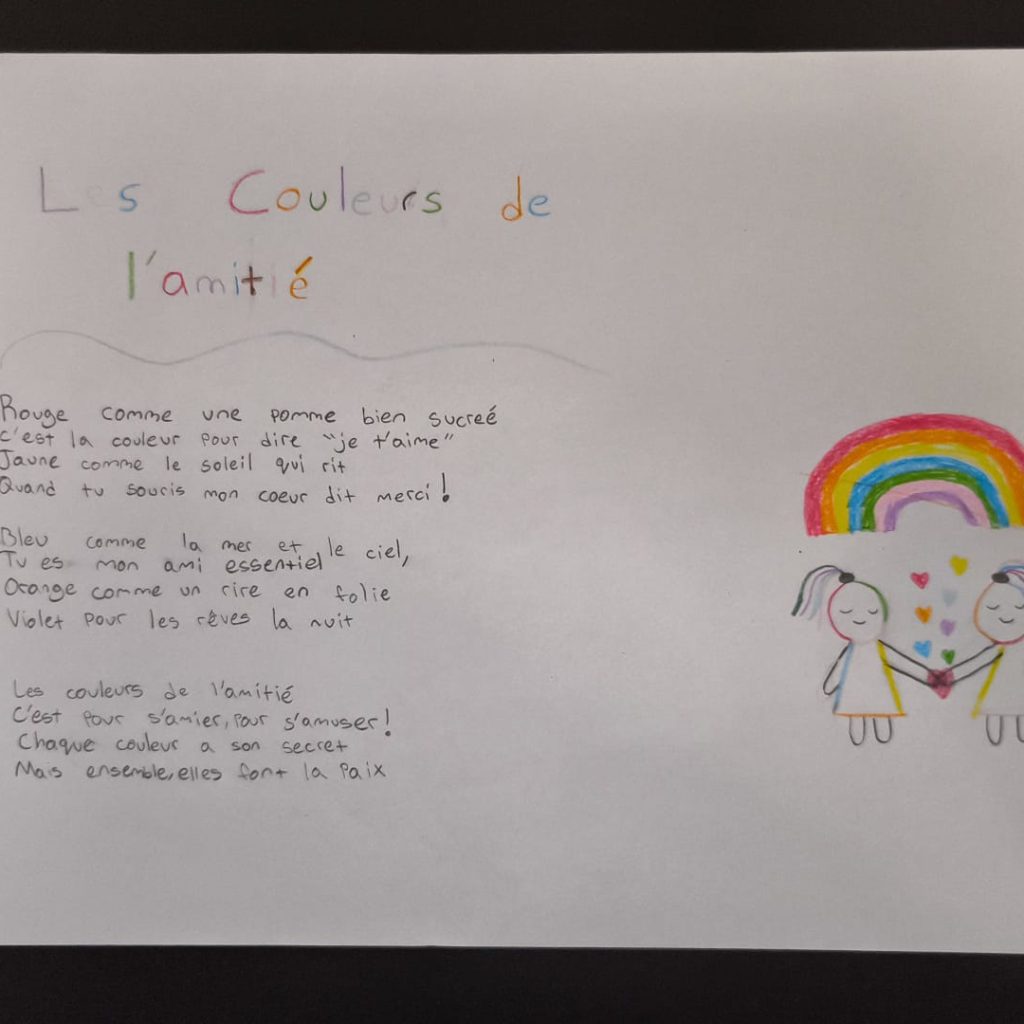 Les Couleurs de
l'amitié
Rouge comme une pomme bien sucreé
C'est la couleur pour dire "je t'aime"
Jaune comme le soleil qui rit
Quand tu souris mon coeur dit merci!
Bleu comme la mer et le ciel,
Tu es mon ami essentiel
Orange comme un rire en folie
Violet pour les rêves la nuit
Les couleurs de l'amitié
C'est pour s'amier, pour s'amuser!
Chaque couleur a son secret
Mais ensemble, elles font la Paix